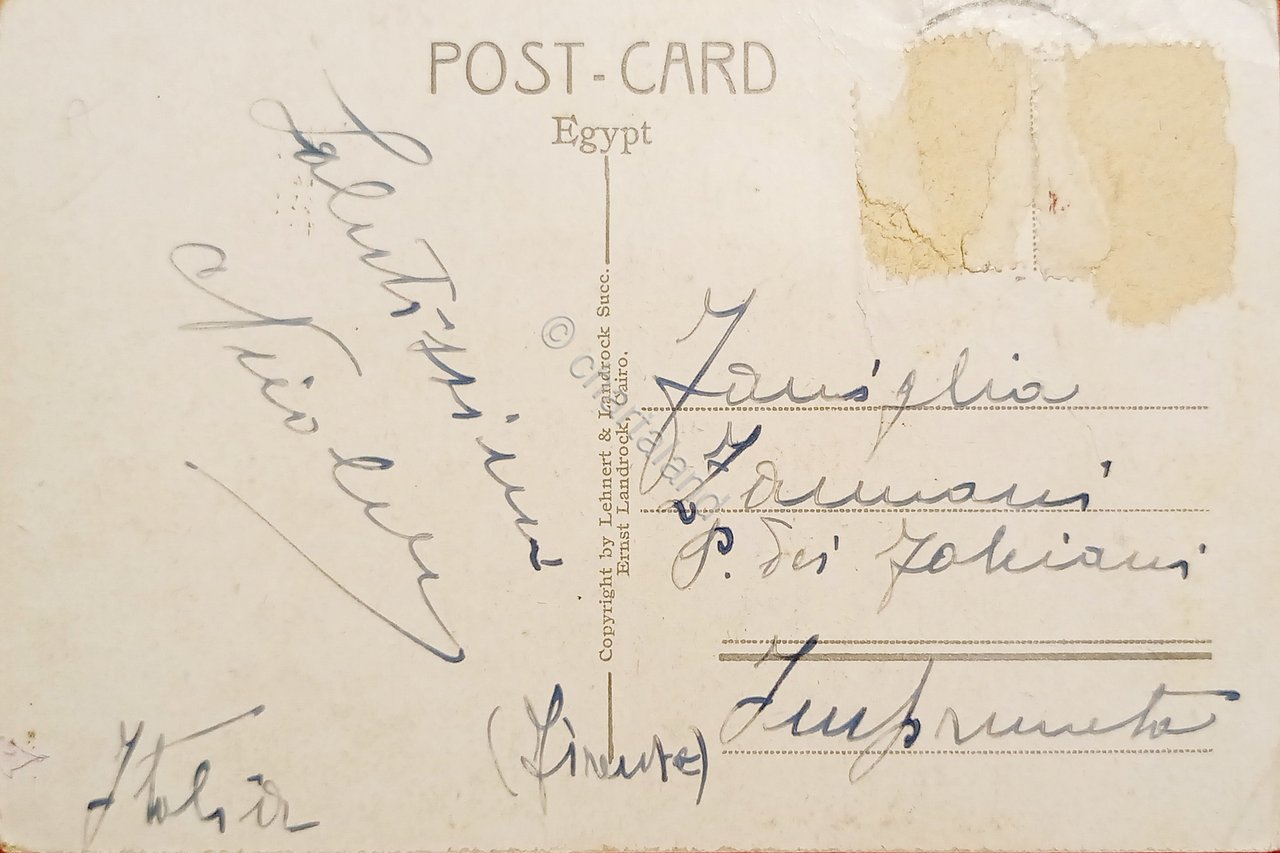 POST-CARD
Egypt
Salutissimi
Famiglia
P. dei
Impruneta
(Firenze)
Italia
Copyright by Lehnert & Landrock Succ.
Ernst Landrock, Cairo.
© chartaland